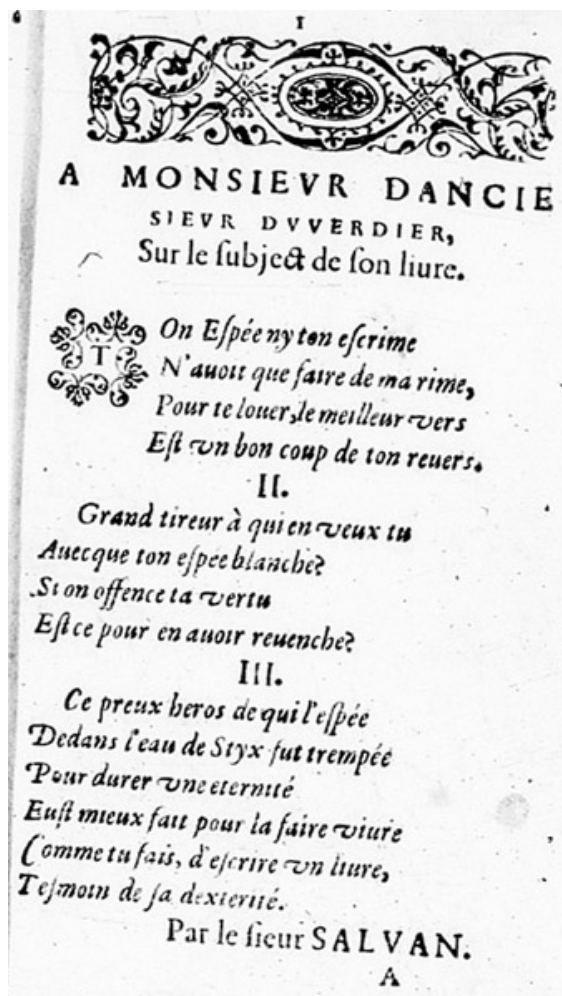 1
A MONSIEVR DANCIE
SIEVR DVVERDIER,
Sur le ſubject de ſon liure.
TOn Eſpée ny ton eſcrime
N'auoit que faire de ma rime,
Pour te louer, le meilleur vers
Eſt vn bon coup de ton reuers.
II.
Grand tireur à qui en veux tu
Auecque ton eſpée blanche?
Si on offence ta vertu
Eſt ce pour en auoir reuenche?
III.
Ce preux heros de qui l'eſpée
Dedans l'eau de Styx fut trempée
Pour durer vne eternité
Euſt mieux fait pour la faire viure
Comme tu fais, d'eſcrire vn liure,
Teſmoin de ſa dexterité.
Par le ſieur SALVAN.
A